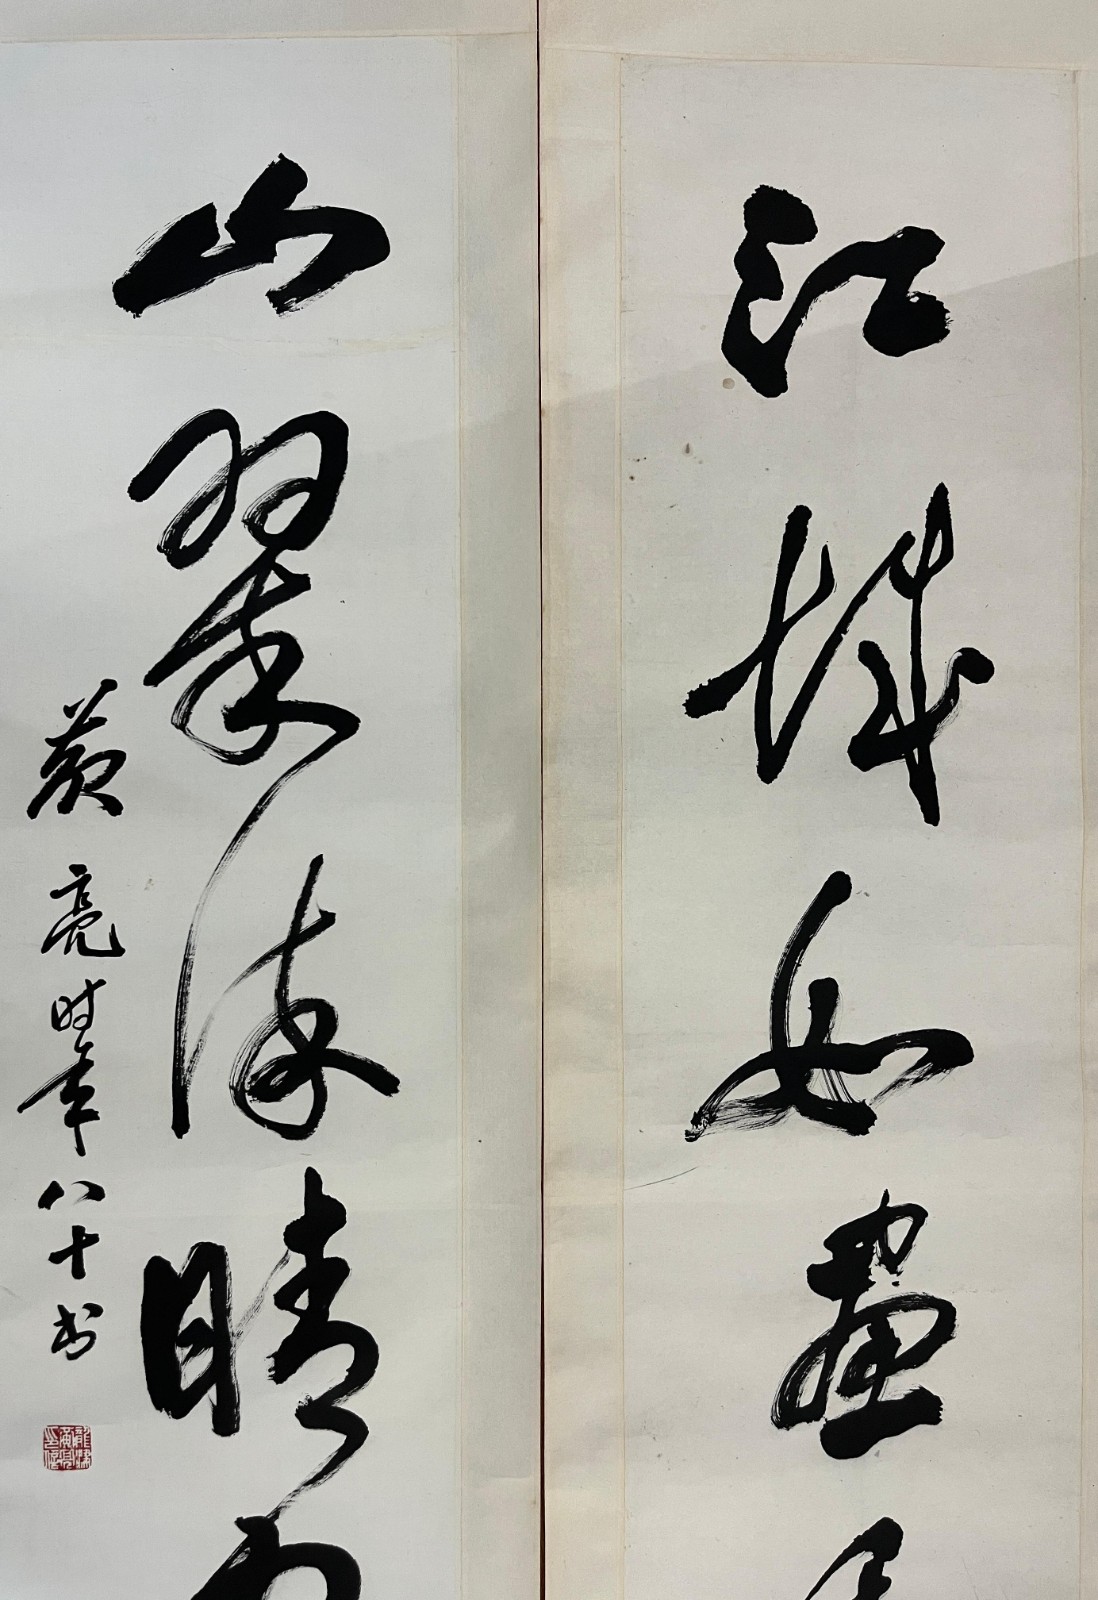 江城如畫
山翠晴
黄亮时年八十书